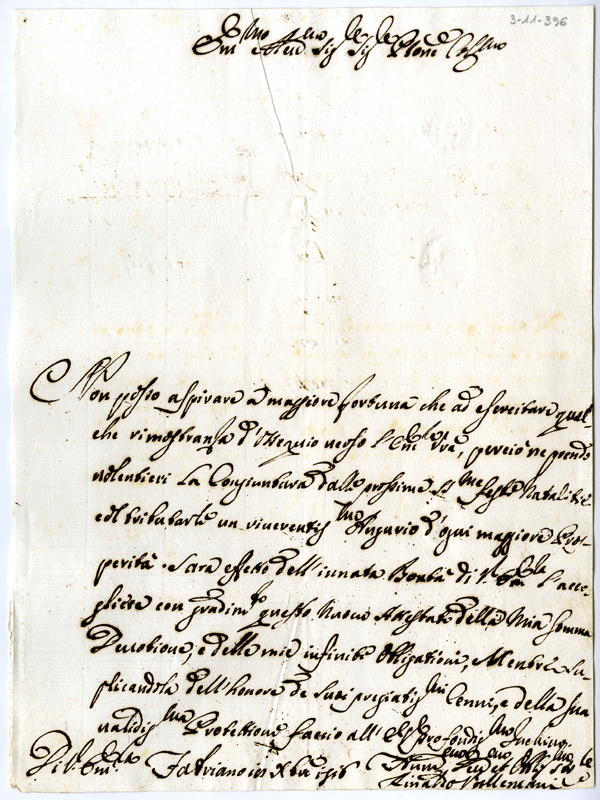 3-11-396
Em.mo e Rev.mo Sig.re Sig.re P.rone Col.mo
Non posso aspirare à maggiore fortuna che ad esercitare qual-
che rimostranza d'Ossequio verso l'Em.za V.ra, perciò ne prendo
volentieri la Congiuntura dalle prossime S.me feste Natalitie
col tributarle un riverentis.mo Augurio d'ogni maggiore Pros-
perità. Sarà effetto dell'innata Bontà di V. Em.za l'acco-
gliere con gradim.to questo nuovo Attestato della Mia somma
Devotione, e delle mie infinite Obligationi, Mentre su-
plicandola dell'honore de suoi pregiatis.mi Cenni, e della sua
validis.ma Protettione faccio all' profondis.mo Inchino.
Di V. Em.za Fabriano
Rinaldo